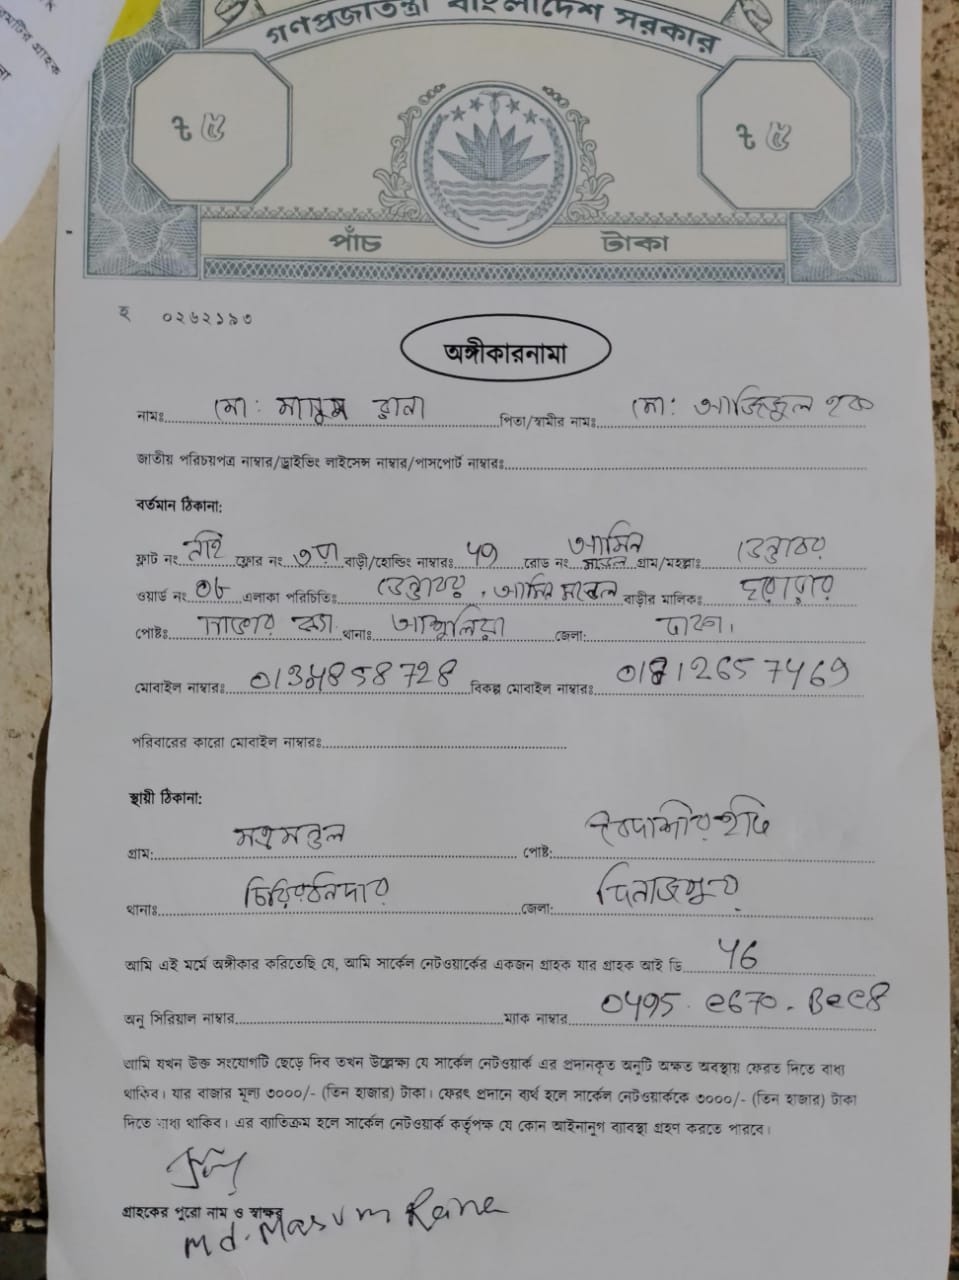 গণপ্রজাতন্ত্রী বাংলাদেশ সরকার
৳ ৫ ৳ ৫
পাঁচ টাকা
হ ০২৬২১৯৩
অঙ্গীকারনামা
নামঃ মো: মাসুম রানা পিতা/স্বামীর নামঃ মো: আজিজুল হক
জাতীয় পরিচয়পত্র নাম্বার/ড্রাইভিং লাইসেন্স নাম্বার/পাসপোর্ট নাম্বারঃ
বর্তমান ঠিকানা:
ফ্লাট নং নাই ফ্লোর নং ৩য় বাড়ী/হোল্ডিং নাম্বারঃ রোড নং আমিন মডেল গ্রাম/মহল্লাঃ
ওয়ার্ড নং ০৮ এলাকা পরিচিতিঃ আমিন মডেল বাড়ীর মালিকঃ
পোষ্টঃ থানাঃ আশুলিয়া জেলা: ঢাকা।
মোবাইল নাম্বারঃ 858728 বিকল্প মোবাইল নাম্বারঃ 12657469
পরিবারের কারো মোবাইল নাম্বারঃ
স্থায়ী ঠিকানা:
গ্রাম: পোষ্ট:
থানাঃ চিরিরবন্দর জেলা: দিনাজপুর
আমি এই মর্মে অঙ্গীকার করিতেছি যে, আমি সার্কেল নেটওয়ার্কের একজন গ্রাহক যার গ্রাহক আই ডি
অনু সিরিয়াল নাম্বার ম্যাক নাম্বার 0495. e670. Bec8
আমি যখন উক্ত সংযোগটি ছেড়ে দিব তখন উল্লেক্ষা যে সার্কেল নেটওয়ার্ক এর প্রদানকৃত অনুটি অক্ষত অবস্থায় ফেরত দিতে বাধ্য
থাকিব। যার বাজার মূল্য ৩০০০/- (তিন হাজার) টাকা। ফেরৎ প্রদানে ব্যর্থ হলে সার্কেল নেটওয়ার্ককে ৩০০০/- (তিন হাজার) টাকা
দিতে বাধ্য থাকিব। এর ব্যতিক্রম হলে সার্কেল নেটওয়ার্ক কর্তৃপক্ষ যে কোন আইনানুগ ব্যবস্থা গ্রহণ করতে পারবে।
গ্রাহকের পুরো নাম ও স্বাক্ষর
Md. Masum Rana